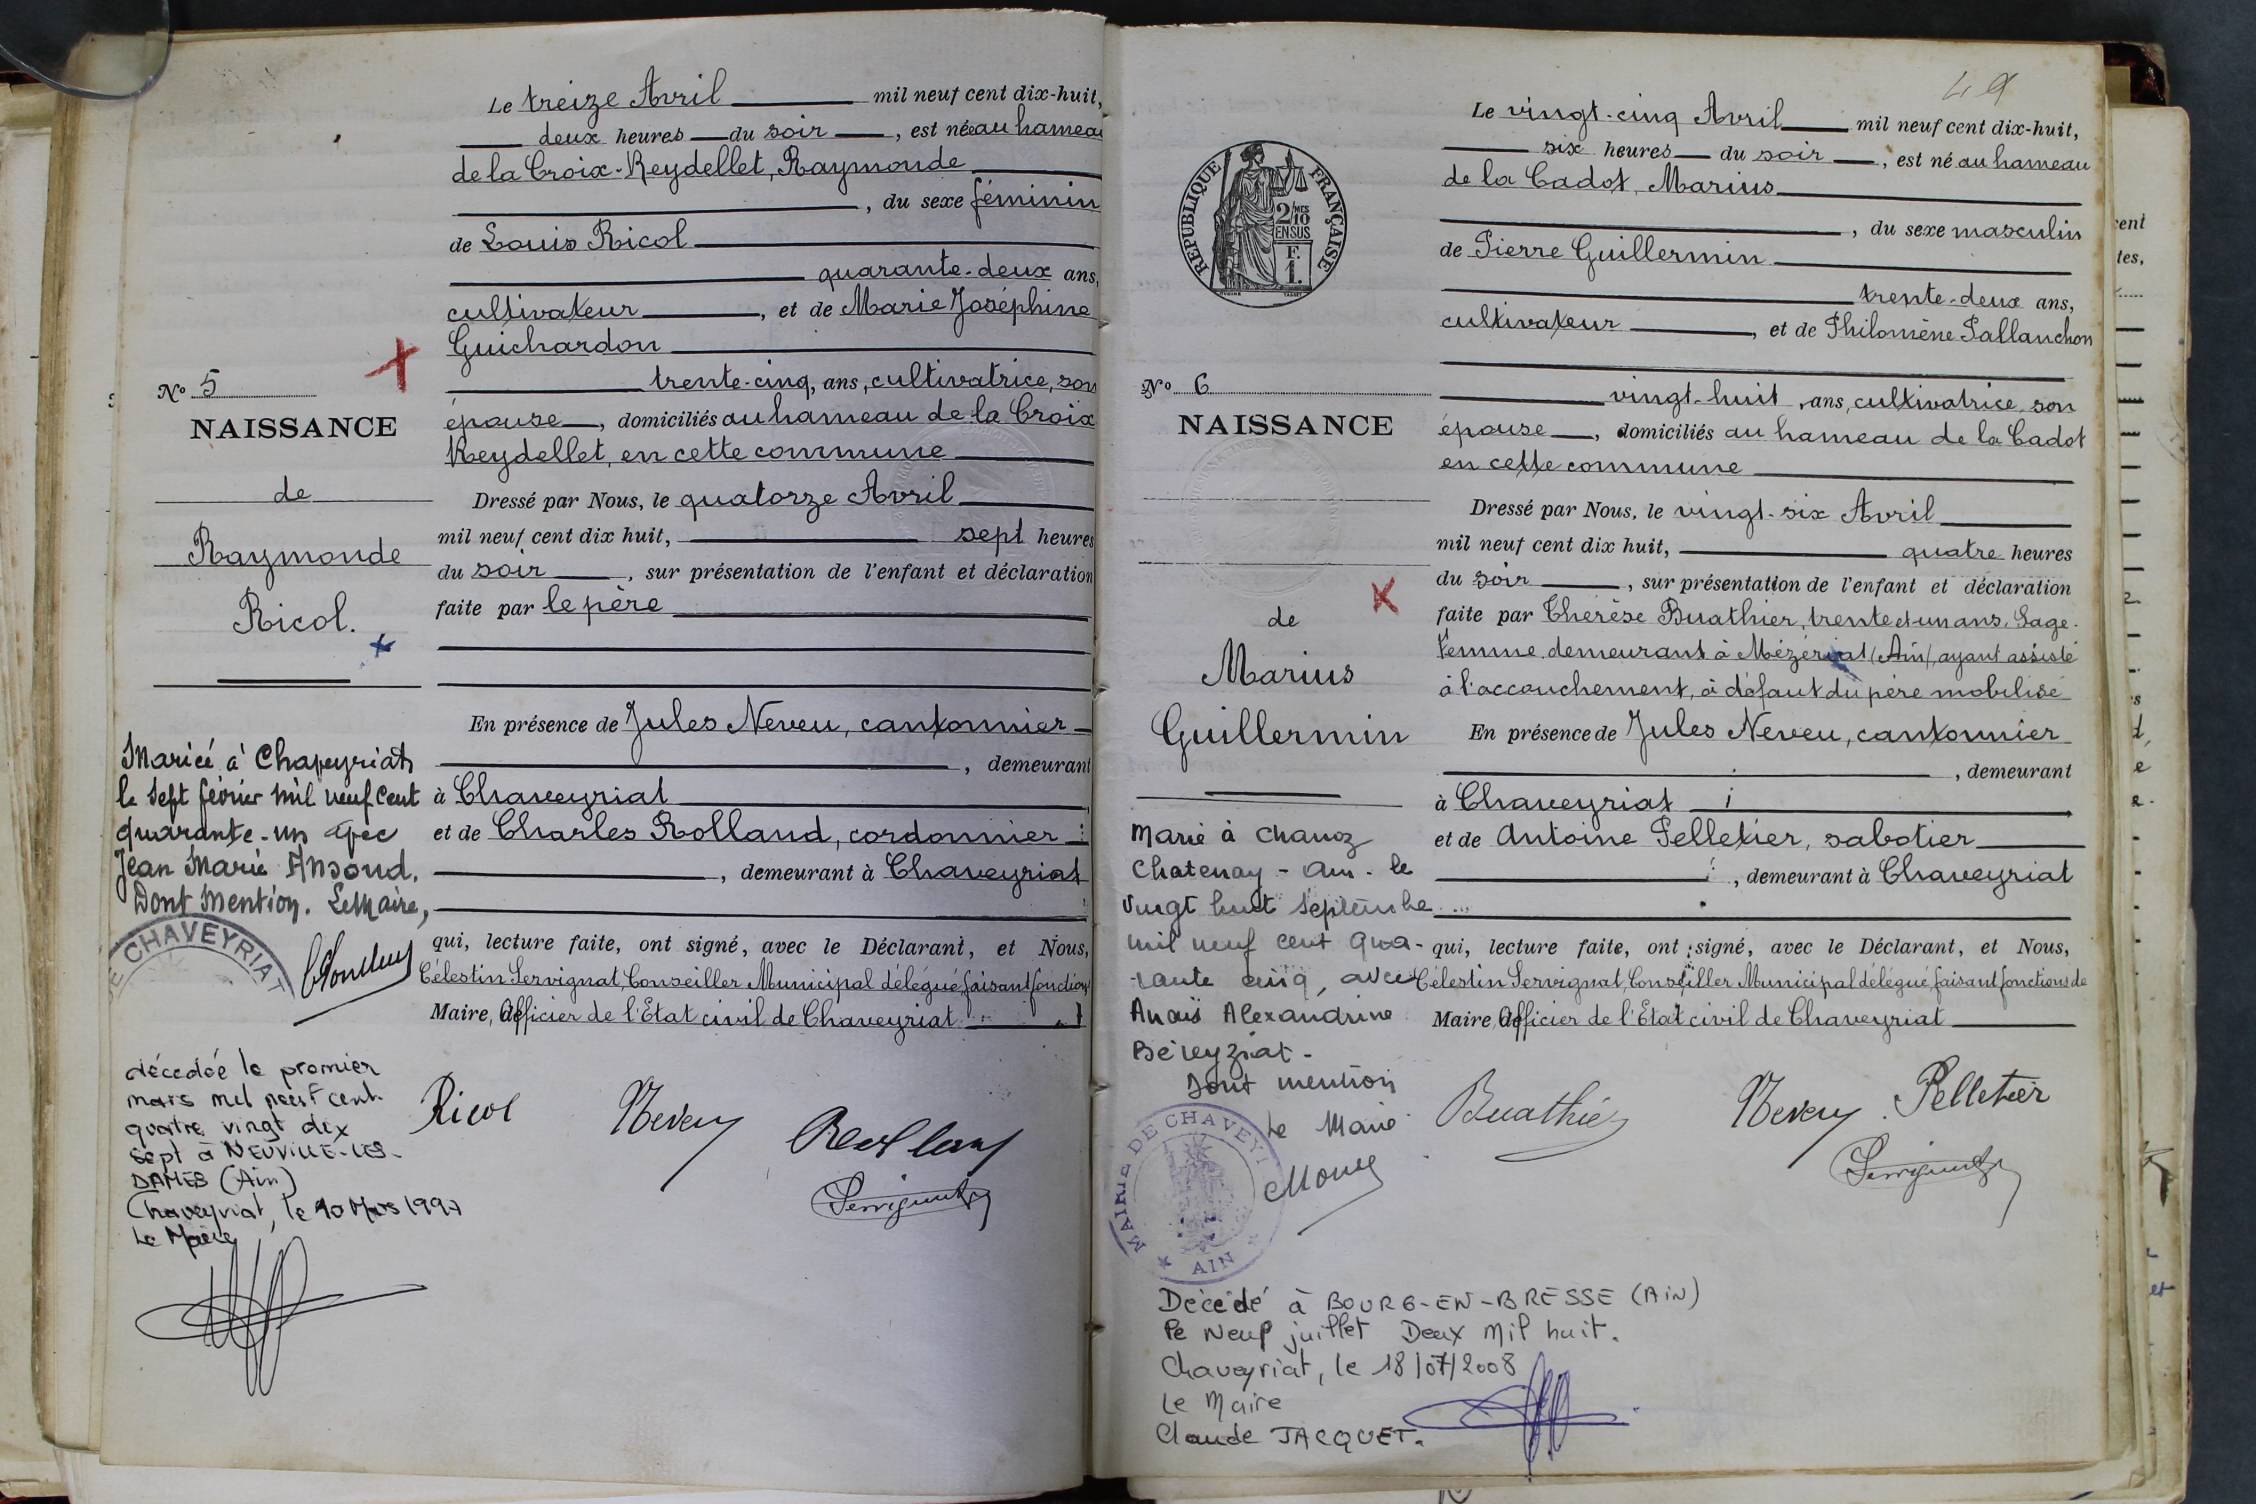 Le treize Avril mil neuf cent dix-huit,
deux heures du soir, est née au hameau
de la Croix-Reydellet, Raymonde
, du sexe féminin
de Louis Ricol
quarante-deux ans,
cultivateur, et de Marie Joséphine
Guichardon
trente-cinq, ans, cultivatrice, son
épouse, domiciliés au hameau de la Croix
Reydellet, en cette commune
Dressé par Nous, le quatorze Avril
mil neuf cent dix huit, sept heures
du soir, sur présentation de l'enfant et déclaration
faite par le père
En présence de Jules Neveu, cantonnier
, demeurant
à Chaveyriat
et de Charles Rolland, cordonnier
, demeurant à Chaveyriat
qui, lecture faite, ont signé, avec le Déclarant, et Nous,
Célestin Servignat, Conseiller Municipal délégué, faisant fonctions
Maire, Officier de l'État civil de Chaveyriat
Ricol Neveu Rolland
Servignat
No 5
NAISSANCE
de
Raymonde
Ricol.
Mariée à Chaveyriat
le sept février mil neuf cent
quarante-un avec
Jean Marie
Dont mention. Le Maire,
DE CHAVEYRIAT
décédée le premier
mars mil neuf cent
quatre vingt dix
sept à NEUVILLE-LES-
DAMES (Ain)
Chaveyriat, le 10 Mars 1997
Le Maire
49
Le vingt-cinq Avril mil neuf cent dix-huit,
six heures du soir, est né au hameau
de la Cadot, Marius
, du sexe masculin
de Pierre Guillermin
trente-deux ans,
cultivateur, et de Philomène Pallanchon
vingt-huit, ans, cultivatrice, son
épouse, domiciliés au hameau de la Cadot
en cette commune
Dressé par Nous, le vingt-six Avril
mil neuf cent dix huit, quatre heures
du soir, sur présentation de l'enfant et déclaration
faite par Thérèse Buathier, trente et un ans, Sage-
femme, demeurant à Mézériat (Ain), ayant assisté
à l'accouchement, à défaut du père mobilisé
En présence de Jules Neveu, cantonnier
, demeurant
à Chaveyriat
et de Antoine Pelletier, sabotier
, demeurant à Chaveyriat
qui, lecture faite, ont signé, avec le Déclarant, et Nous,
Célestin Servignat, Conseiller Municipal délégué, faisant fonctions de
Maire Officier de l'État civil de Chaveyriat
Buathier Neveu Pelletier
Servignat
RÉPUBLIQUE FRANÇAISE
2/10 MES
EN SUS
F.
1.
No 6
NAISSANCE
de
Marius
Guillermin
Marié à Chanoz
Chatenay - Ain - le
vingt huit Septembre
mil neuf cent qua-
rante cinq, avec
Anaïs Alexandrine
Béreyziat -
Dont mention
Le Maire
MAIRIE DE CHAVEYRIAT
AIN
Décédé à BOURG-EN-BRESSE (AiN)
le Neuf juillet Deux mil huit.
Chaveyriat, le 18/07/2008
Le Maire
Claude JACQUET.